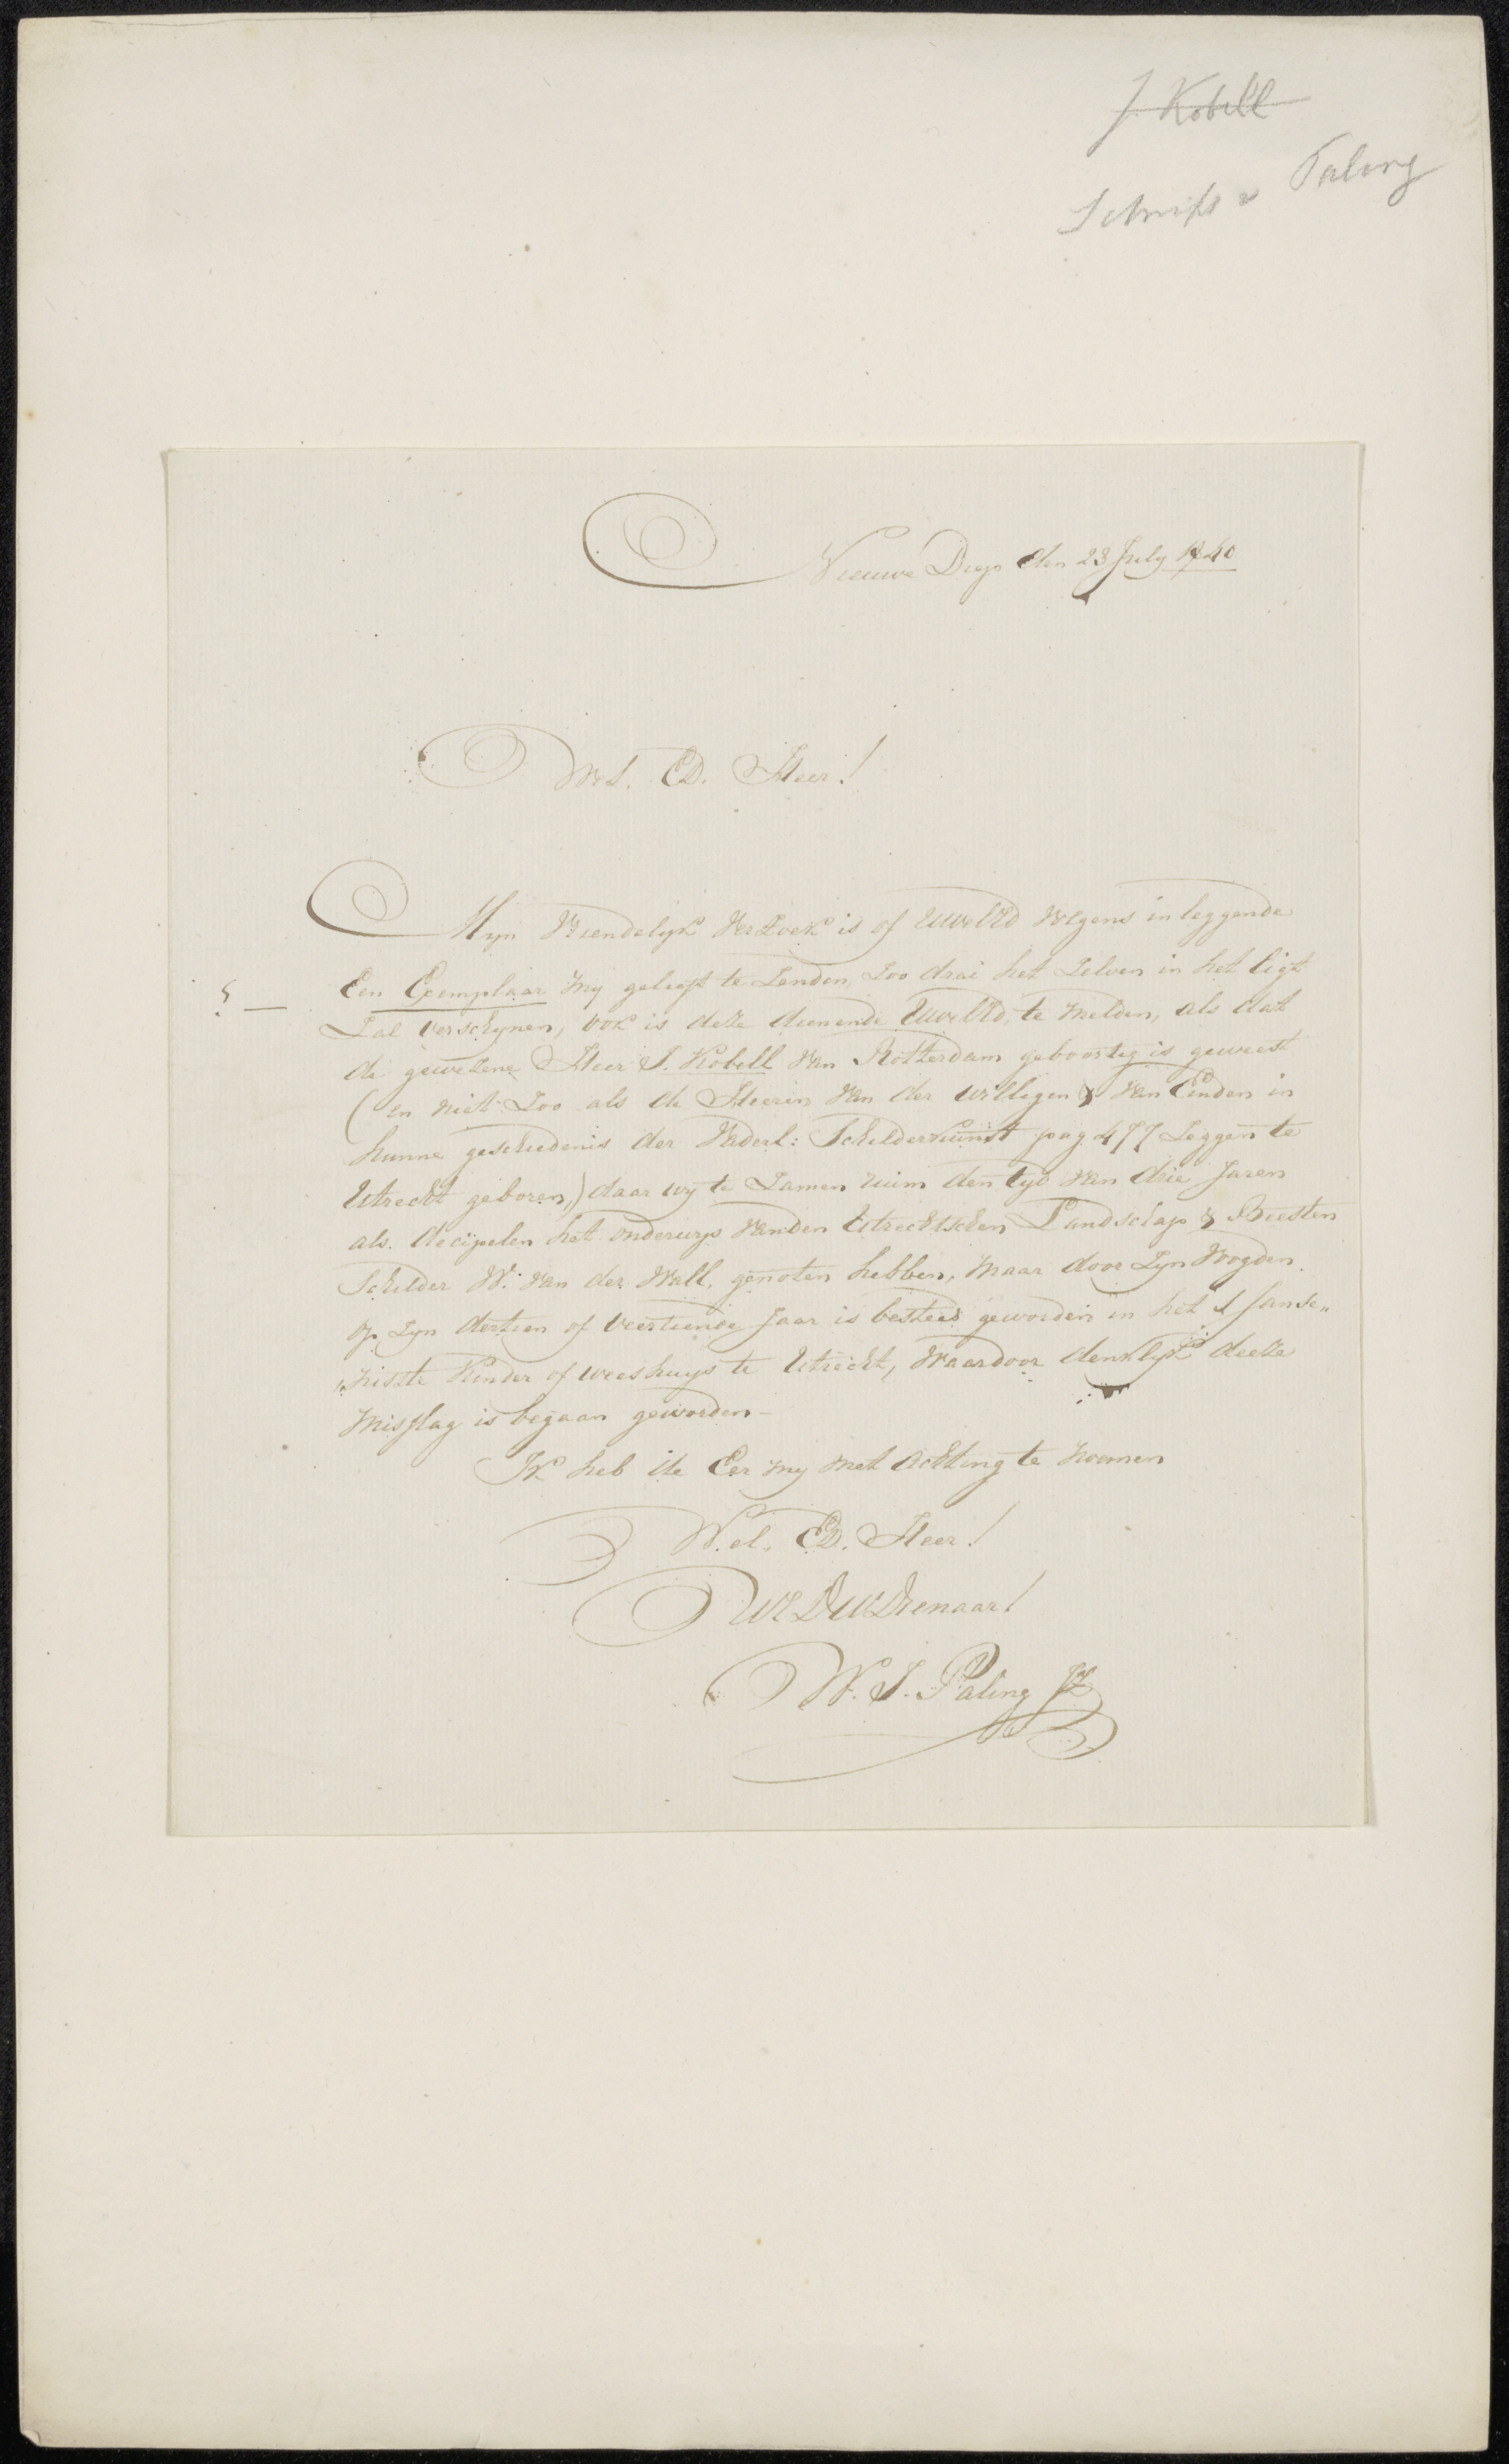 J. Kobell
Schrift v Paling
Nieuwe Diep den 23 July 1840
Wel. Ed. Heer!
Mijn Vriendelyk VerZoek is of UwelEd Volgens inleggende
Een Exemplaar my gelieft te Zenden, Zoo drai het Zelven in het ligt
Zal verschynen, ook is deze dienende UwelEd, te melden, als dat
de gewezene Heer J. Kobell van Rotterdam geboortig is geweest
(en niet Zoo als de Heeren Van der Willigen & Van Einden in
hunne geschiedenis der Vaderl: Schilderkunst pag 477 Zeggen te
Utrecht geboren,) daar wy te Zamen ruim den tyd van drie Jaren
als. decipelen het onderwys van den Utrechtschen Landschap & Beesten
Schilder W: van der Wall, genoten hebben, maar door Zyn Voogden
op Zyn dertien of Veertiende Jaar is besteed geworden in het Janse„
„niste Kinder of weeshuys te Utrecht, Waardoor denklyk deeze
misslag is begaan geworden -
Ik heb de Eer my met Achting te noemen
Wel. Ed. Heer!
UEDWDienaar!
W. J. Paling Jz